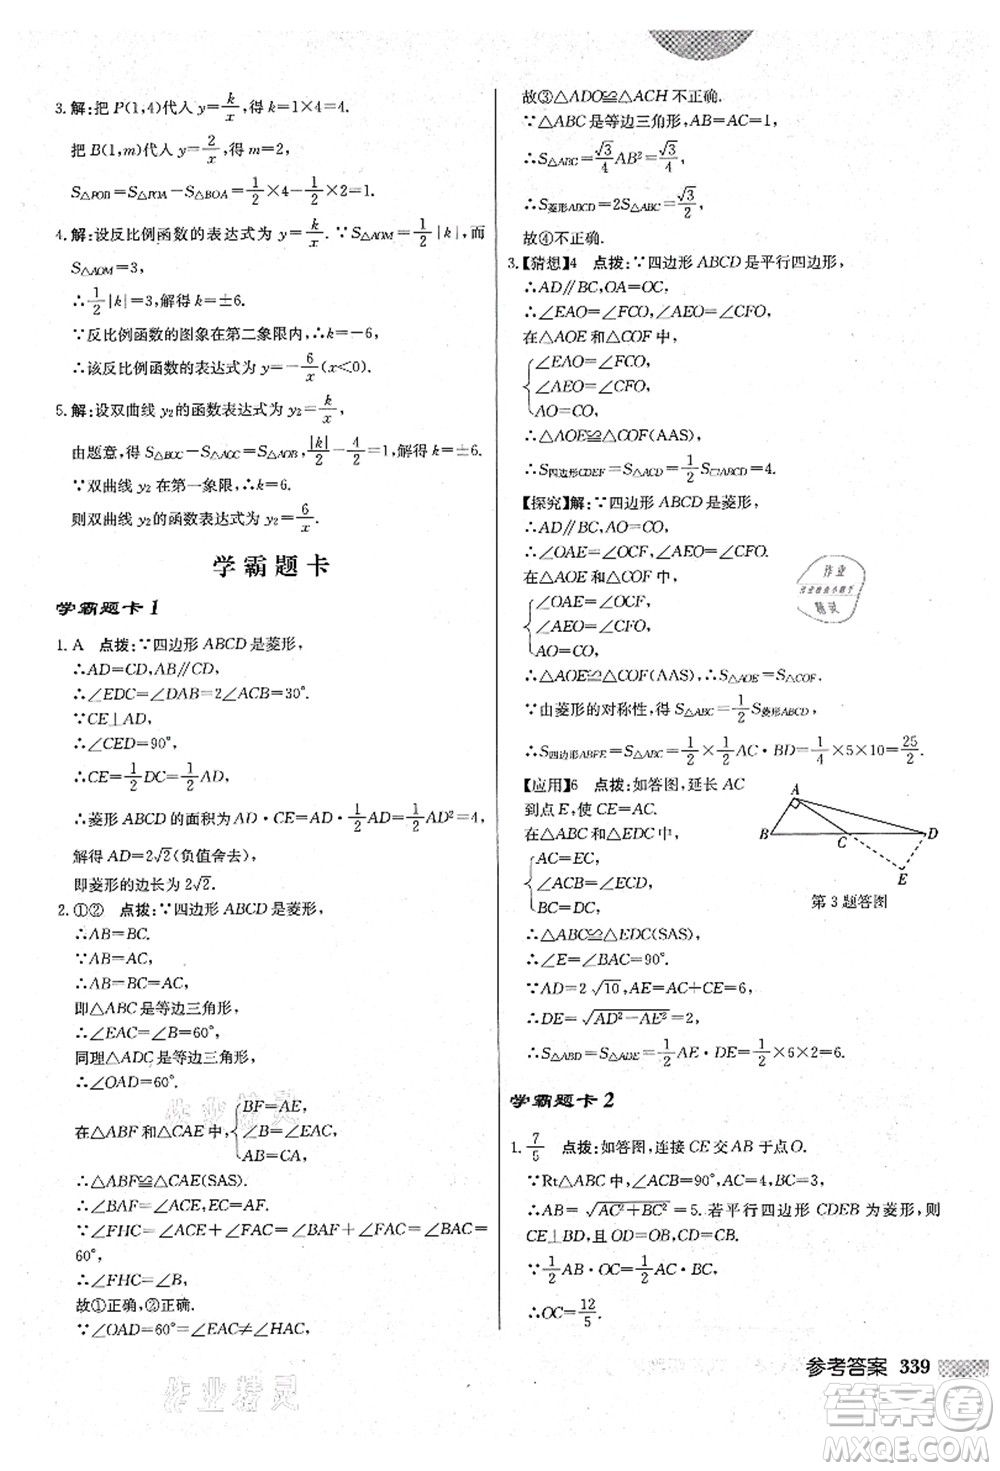 3. 解:把 P(1,4)代入 y=k/x,得 k=1×4=4.
把 B(1,m)代入 y=2/x,得 m=2,
S△POB=S△POA-S△BOA=1/2×4-1/2×2=1.
4. 解:设反比例函数的表达式为 y=k/x.∵S△AOM=1/2|k|,而
S△AOM=3,
∴1/2|k|=3,解得 k=±6.
∵反比例函数的图象在第二象限内,∴k=-6,
∴该反比例函数的表达式为 y=-6/x(x<0).
5. 解:设双曲线 y2的函数表达式为 y2=k/x,
由题意,得 S△BOC-S△AOC=S△AOB,|k|/2-4/2=1,解得 k=±6.
∵双曲线 y2 在第一象限,∴k=6.
则双曲线 y2的函数表达式为 y2=6/x.
学霸题卡
学霸题卡 1
1. A 点拨:∵四边形 ABCD 是菱形,
∴AD=CD,AB∥CD,
∴∠EDC=∠DAB=2∠ACB=30°.
∵CE⊥AD,
∴∠CED=90°,
∴CE=1/2CD=1/2AD,
∴菱形 ABCD 的面积为 AD·CE=AD·1/2AD=1/2AD²=4,
解得 AD=2√2(负值舍去),
即菱形的边长为 2√2.
2. ①② 点拨:∵四边形 ABCD 是菱形,
∴AB=BC.
∵AB=AC,
∴AB=BC=AC,
即△ABC 是等边三角形,
∴∠EAC=∠B=60°.
同理△ADC 是等边三角形,
∴∠OAD=60°.
在△ABF 和△CAE 中,{BF=AE,
∠B=∠EAC,
AB=CA,
∴△ABF≌△CAE(SAS).
∴∠BAF=∠ACE,EC=AF.
∵∠FHC=∠ACE+∠FAC=∠BAF+∠FAC=∠BAC=
60°,
∴∠FHC=∠B,
故①正确,②正确.
∵∠OAD=60°=∠EAC≠∠HAC,
故③△ADO≌△ACH 不正确.
∵△ABC 是等边三角形,AB=AC=1,
∴S△ABC=√3/4AB²=√3/4,
∴S菱形ABCD=2S△ABC=√3/2,
故④不正确.
3.【猜想】4 点拨:∵四边形 ABCD 是平行四边形,
∴AD∥BC,OA=OC,
∴∠EAO=∠FCO,∠AEO=∠CFO,
在△AOE 和△COF 中,
{∠EAO=∠FCO,
∠AEO=∠CFO,
AO=CO,
∴△AOE≌△COF(AAS),
∴S四边形CDEF=S△ACD=1/2S▱ABCD=4.
【探究】解:∵四边形 ABCD 是菱形,
∴AD∥BC,AO=CO,
∴∠OAE=∠OCF,∠AEO=∠CFO.
在△AOE 和△COF 中,
{∠OAE=∠OCF,
∠AEO=∠CFO,
AO=CO,
∴△AOE≌△COF(AAS),∴S△AOE=S△COF.
∵由菱形的对称性,得 S△ABC=1/2S菱形ABCD,
∴S四边形ABFE=S△ABC=1/2×1/2AC·BD=1/4×5×10=25/2.
【应用】6 点拨:如答图,延长 AC
到点 E,使 CE=AC.
在△ABC 和△EDC 中,
{AC=EC,
∠ACB=∠ECD,
BC=DC,
∴△ABC≌△EDC(SAS)
∴∠E=∠BAC=90°.
∵AD=2√10,AE=AC+CE=6,
∴DE=√(AD²-AE²)=2,
∴S△ABD=S△ADE=1/2AE·DE=1/2×6×2=6.
A
B
C
D
E
第 3 题答图
学霸题卡 2
1. 7/5 点拨:如答图,连接 CE 交 AB 于点 O.
∵Rt△ABC 中,∠ACB=90°,AC=4,BC=3,
∴AB=√(AC²+BC²)=5.若平行四边形 CDEB 为菱形,则
CE⊥BD,且 OD=OB,CD=CB.
∵1/2AB·OC=1/2AC·BC,
∴OC=12/5.
参考答案 339
作业
精灵
作业精灵
作业精灵
答案卷
MXQE.COM